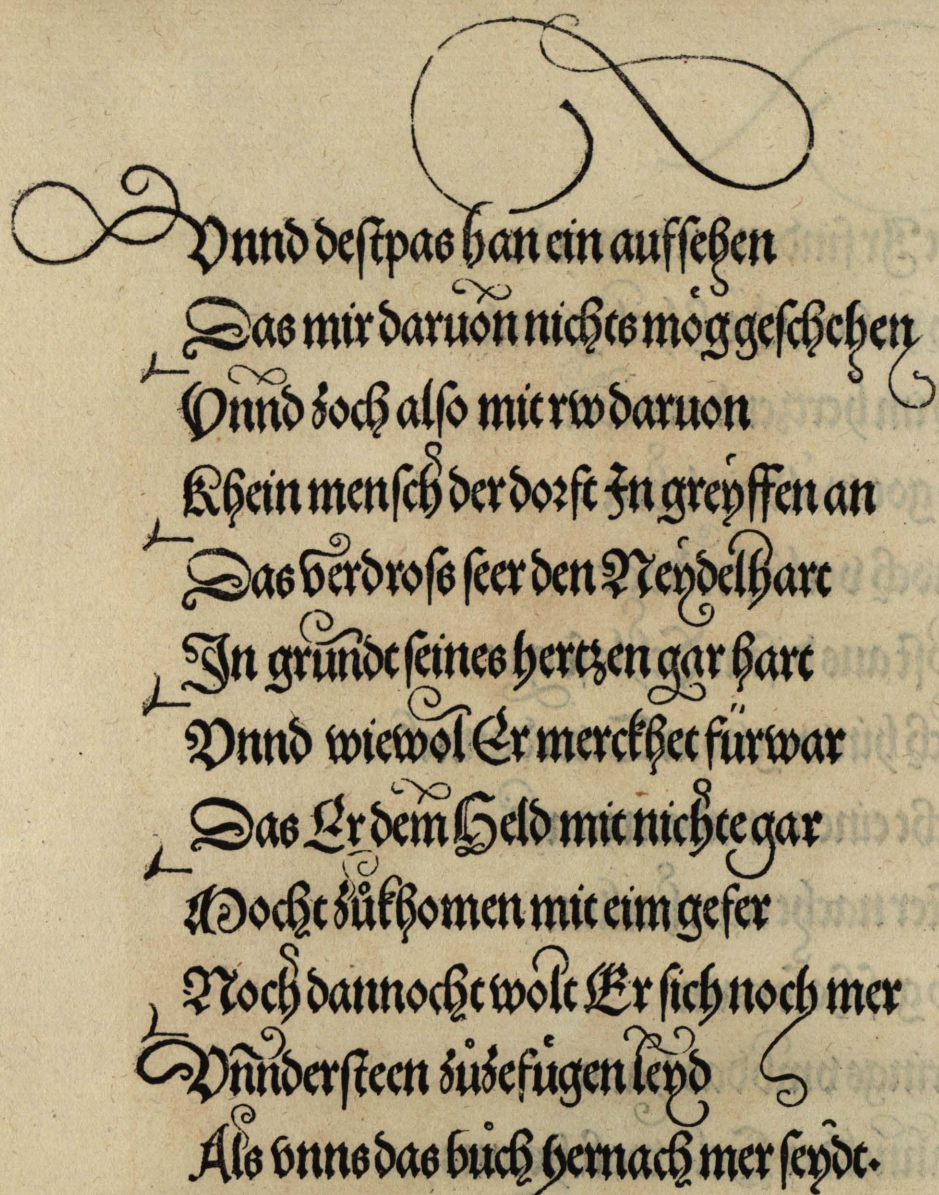 Vnnd destpas han ein aufsehen
Das mir daruon nichts mög geschehen
Vnnd zoch also mit rw daruon
Khein mensch der dorft In greyffen an
Das verdross seer den Neydelhart
In grundt seines hertzen gar hart
Vnnd wiewol Er merckhet fürwar
Das Er dem Held mit nichte gar
Mocht zůkhomen mit eim gefer
Noch dannocht wolt Er sich noch mer
Vnndersteen zůzefůgen leyd
Als vnns das bůch hernach mer seydt.